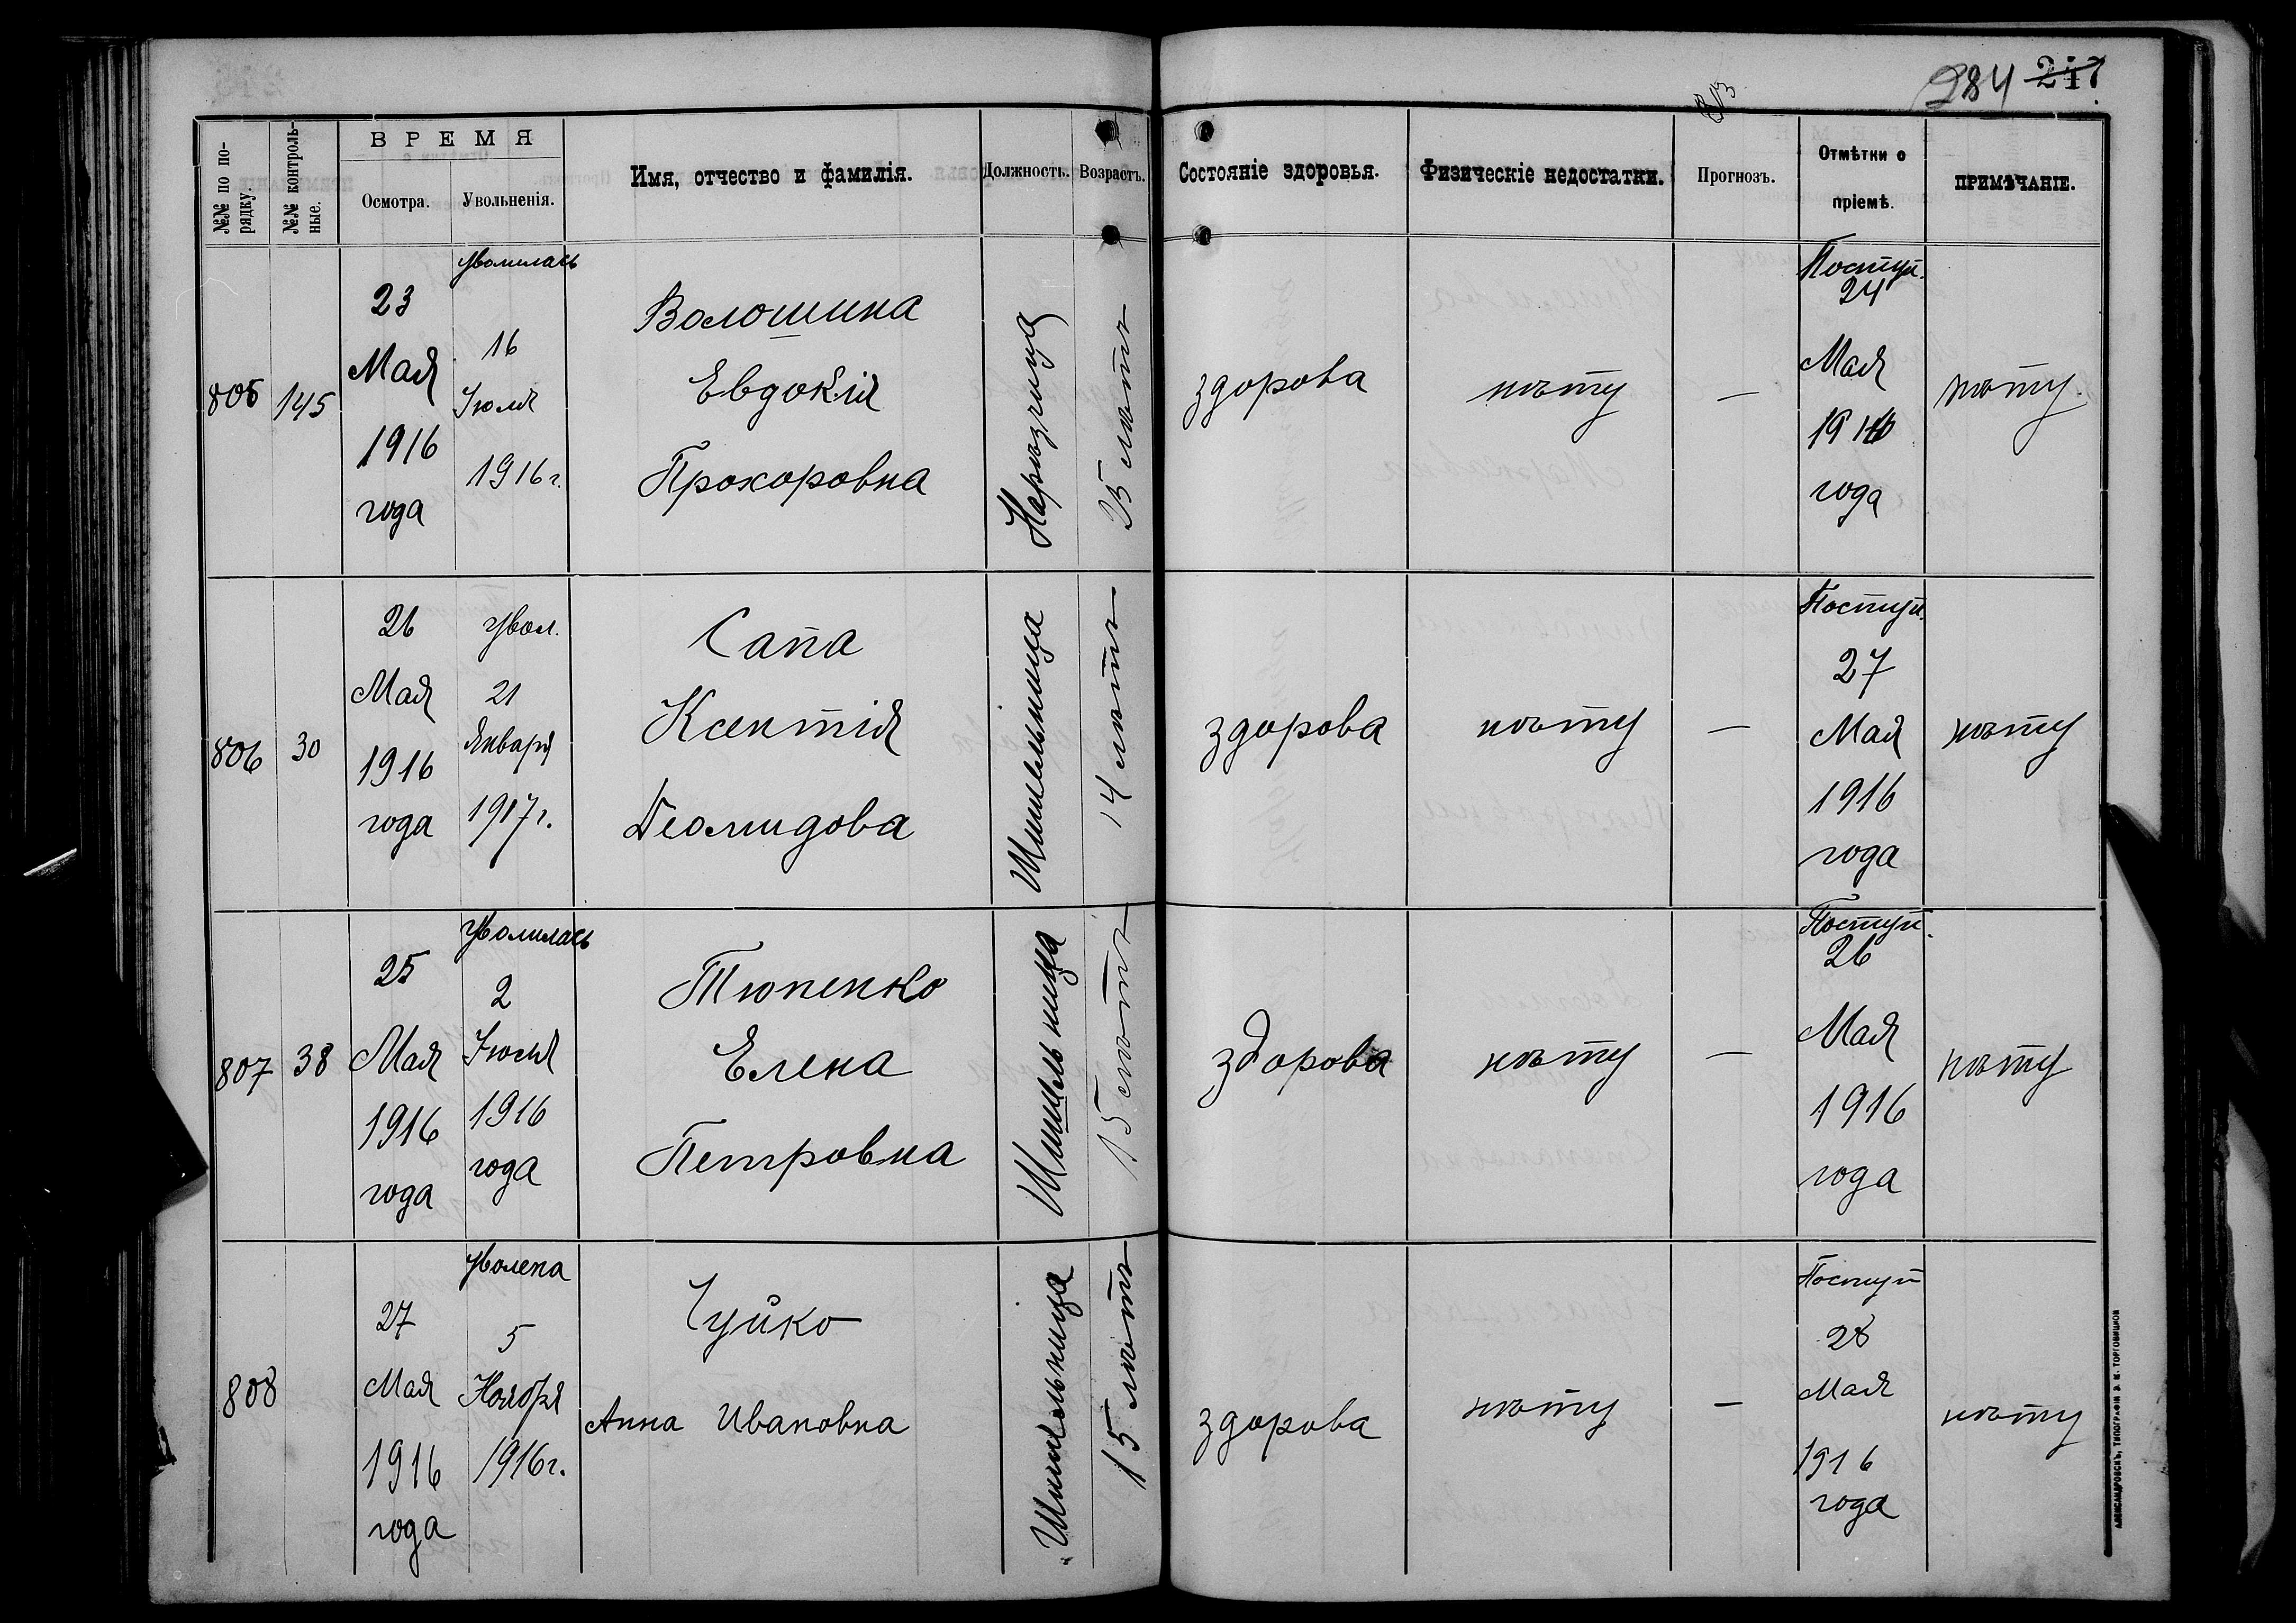 284 247
ВРЕМЯ
№№ по порядку.
№№ контрольные.
Осмотра.
Увольненія.
Имя, отчество и фамилія.
Должность.
Возрастъ.
Состояніе здоровья.
Физическіе недостатки.
Прогнозъ.
Отмѣтки о
пріемѣ.
ПРИМѢЧАНІЕ.
805
145
23
Мая
1916
года
уволилась
16
Іюля
1916 г.
Волошина
Евдокія
Прохоровна
25 лѣтъ
здорова
нѣту
—
Поступ.
24
Мая
1916
года
нѣту.
806
30
26
Мая
1916
года
увол.
21
Января
1917 г.
Сапа
Ксентія
Деомидова
Шпильница
14 лѣтъ
здорова
нѣту
—
Поступ.
27
Мая
1916
года
нѣту
807
38
25
Мая
1916
года
уволилась
2
Іюля
1916
года
Тюпенко
Елена
Петровна
Шпильница
15 лѣтъ
здорова
нѣту
—
Поступ.
26
Мая
1916
года
нѣту
808
27
Мая
1916
года
уволена
5
Ноября
1916 г.
Чуйко
Анна Ивановна
Шпильница
15 лѣтъ
здорова
нѣту
—
Поступ
28
Мая
1916
года
нѣту
АЛЕКСАНДРОВСКЪ, ТИПОГРАФІЯ Э. И. ТОРГОВИЦКОЙ